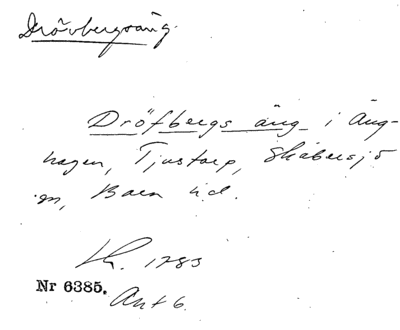 Drövbergsäng.
Dröfbergs äng i Äng-
hagen, Tjustorp, Skabersjö
sn, Bara hd.
Lk. 1783
Nr 6385.
Ant 6.